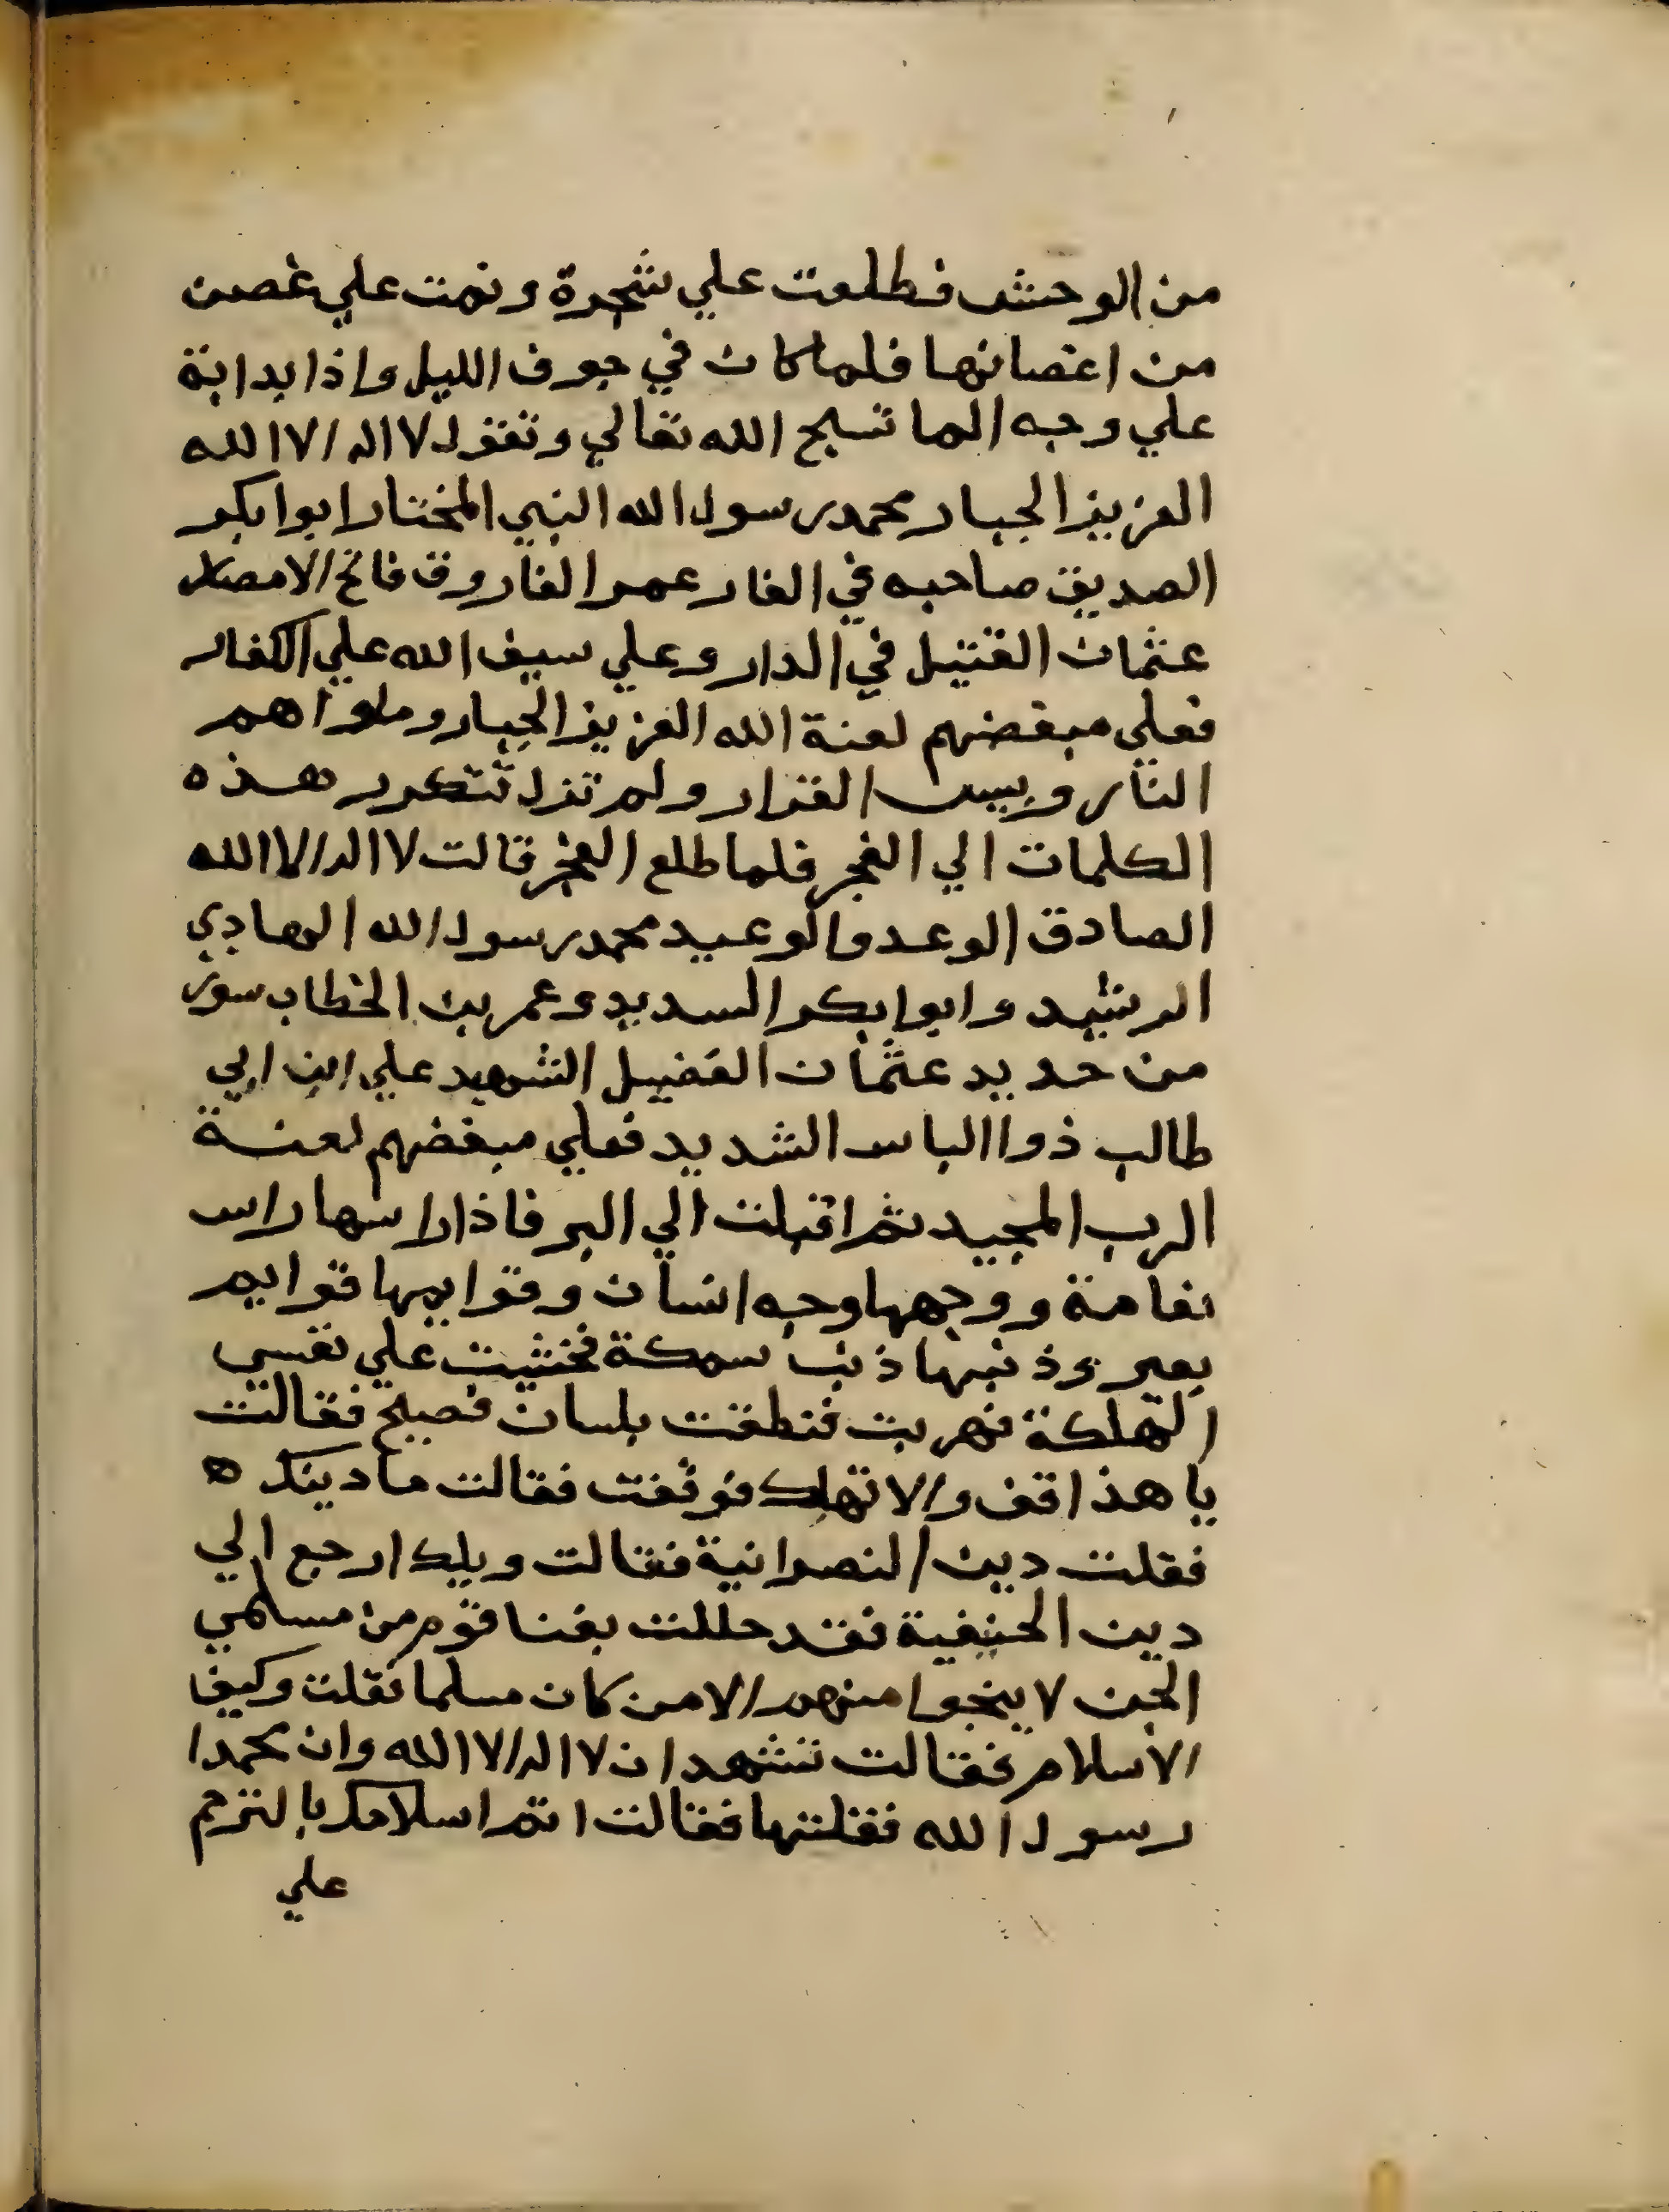 من الوحش فطلعت علي شجرة ونمت علي غصن
من اغصانها فلما كان في جوف الليل واذا بدابة
علي وجه الما تسبح الله تعالي وتقول لا اله الا الله
العزيز الجبار محمد رسول الله النبي المختار ابوا بكر
الصديق صاحبه في الغار عمر الفاروق فاتح الامصار
عثمان القتيل في الدار وعلي سيف الله علي الكفار
فعلي مبغضهم لعنة الله العزيز الجبار وماواهم
النار وبيس القرار ولم تزل تتكرر هذه
الكلمات الي الفجر فلما طلع الفجر قالت لا اله الا الله
الصادق الوعد والوعيد محمد رسول الله الهادي
الرشيد وابوا بكر السديد وعمر بن الخطاب سور
من حديد عثمان الفضيل الشهيد علي ابن ابي
طالب ذوا الباس الشديد فعلي مبغضهم لعنة
الرب المجيد ثم اقبلت الي البر فاذا راسها راس
نعامة ووجهها وجه انسان وقوايمها قوايم
بعير وذنبها ذنب سمكة فخشيت علي نفسي
التهلكة فهربت فنطقت بلسان فصيح فقالت
يا هذا قف والا تهلك فوقفت فقالت ما دينك ه
فقلت دين النصرانية فقالت ويلك ارجع الي
دين الحنيفية فقد حللت بفنا قوم من مسلمي
الجن لا ينجوا منهم الا من كان مسلما فقلت وكيف
الاسلام فقالت تشهد ان لا اله الا الله وان محمدا
رسول الله فقلتها فقالت اتم اسلامك بالترحم
علي